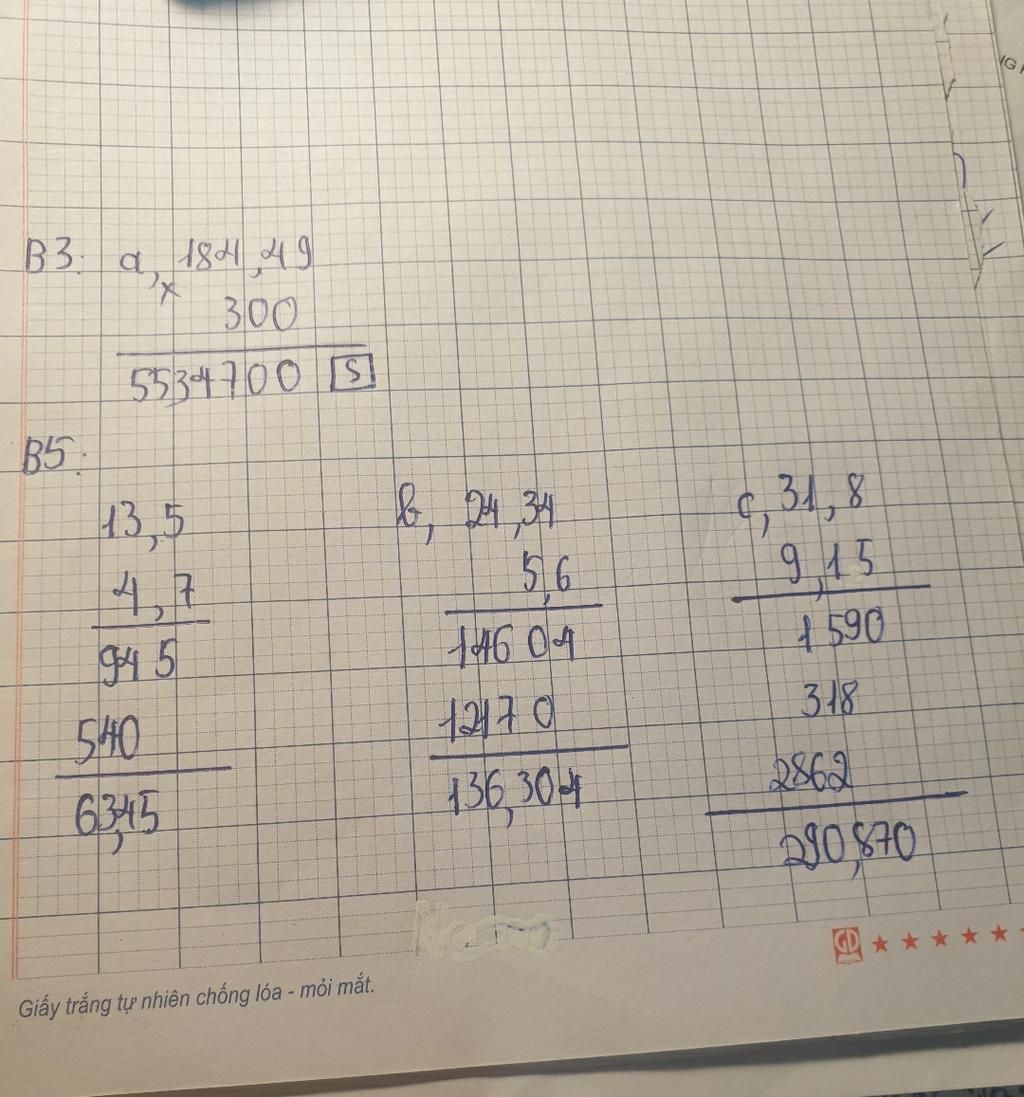 B3: a, 184,49
x
300
5534700 S
B5:
13,5
4,7
945
540
63,45
b, 24,34
5,6
14604
12170
136,304
c, 31,8
9,15
1590
318
2862
290,870
GD ★ ★ ★ ★ ★
Giấy trắng tự nhiên chống lóa - mỏi mắt.